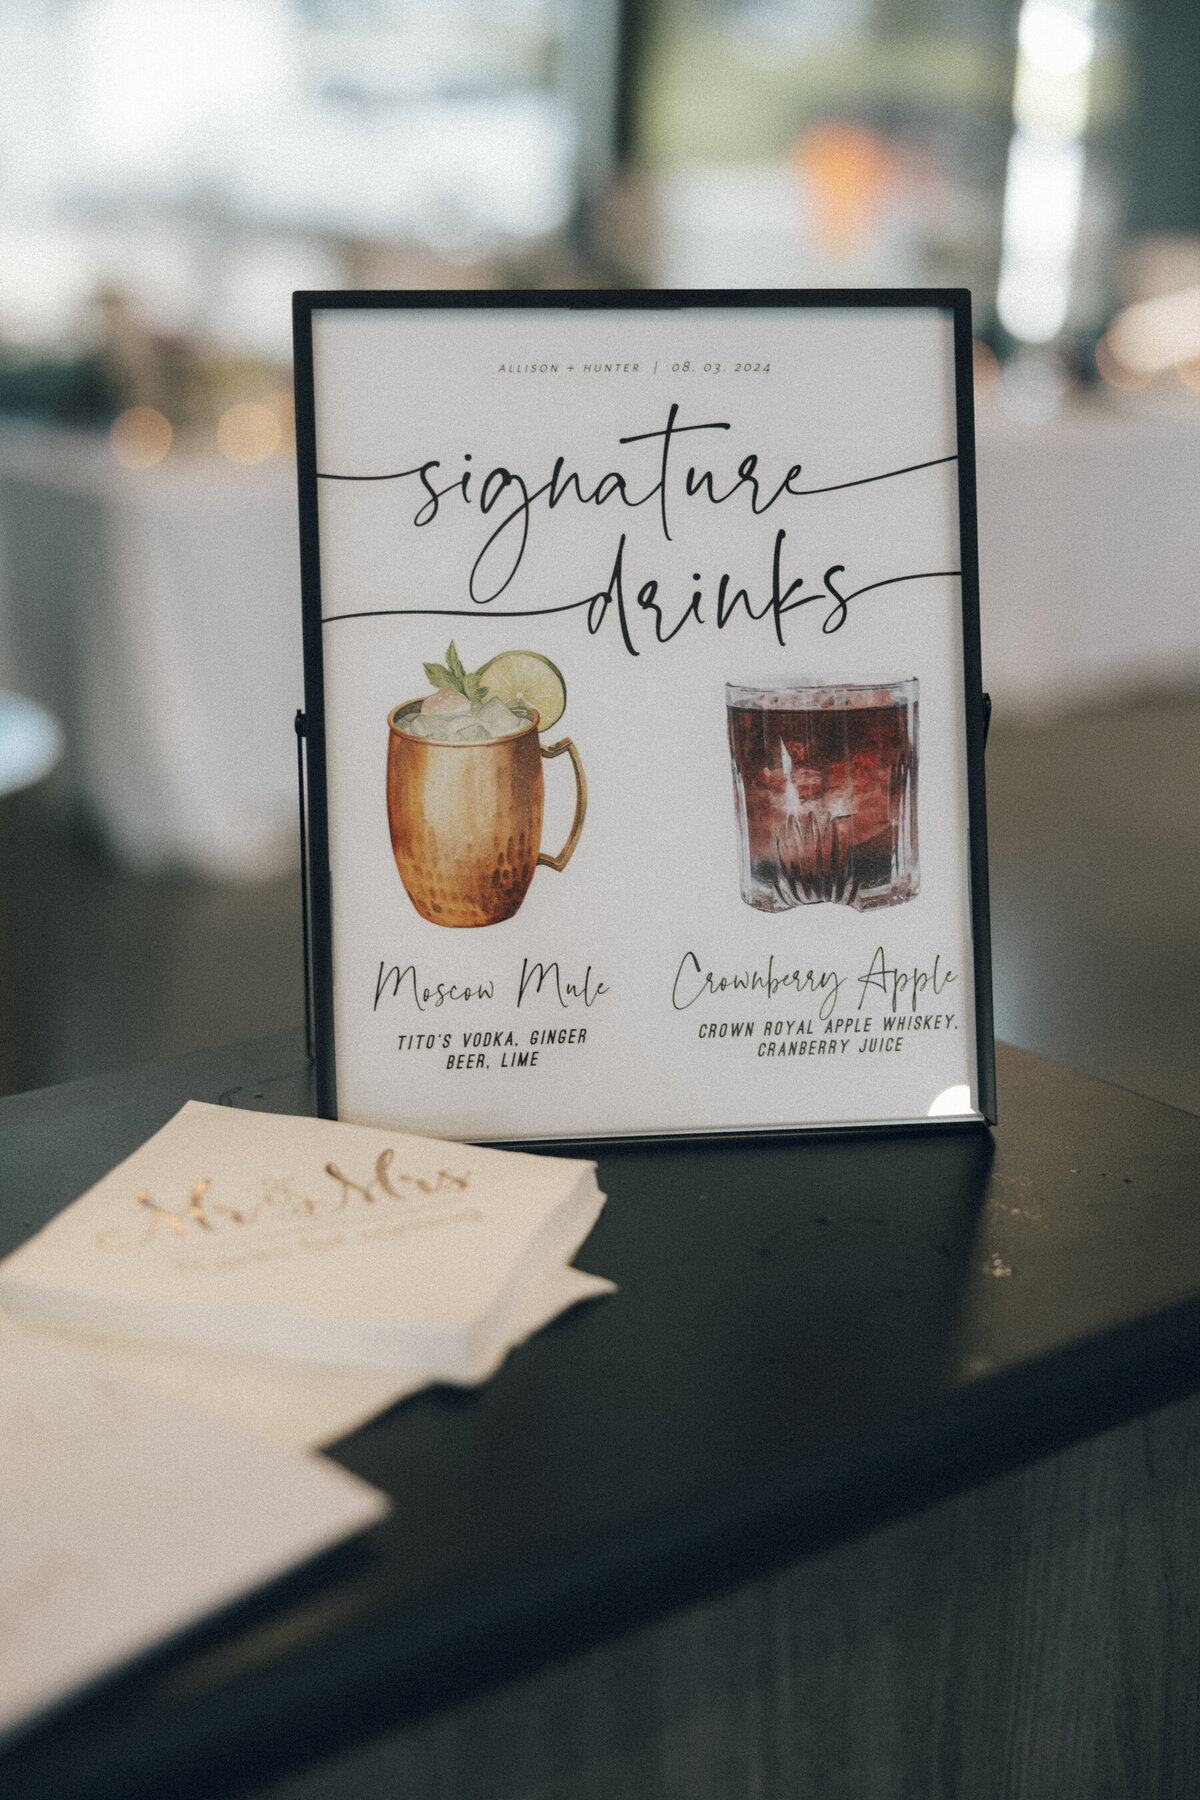 ALLISON + HUNTER | 08. 03. 2024
signature
drinks
Moscow Mule
TITO'S VODKA, GINGER
BEER, LIME
Crownberry Apple
CROWN ROYAL APPLE WHISKEY,
CRANBERRY JUICE
Mr & Mrs